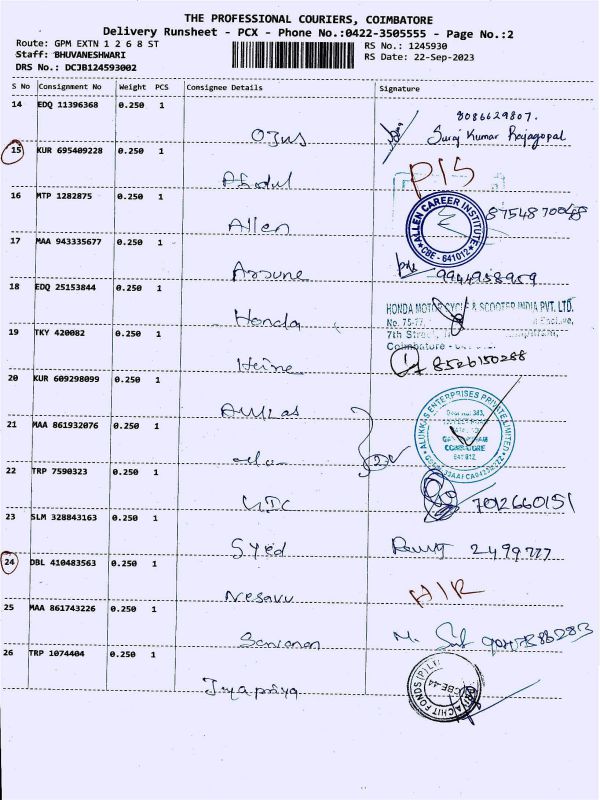 THE PROFESSIONAL COURIERS, COIMBATORE
Delivery Runsheet - PCX - Phone No.:0422-3505555 - Page No.:2
Route: GPM EXTN 1 2 6 8 ST
RS No.: 1245930
Staff: BHUVANESHWARI
RS Date: 22-Sep-2023
DRS No.: DCJB124593002
S No Consignment No Weight PCS Consignee Details Signature
14 EDQ 11396368 0.250 1
8086629807.
Ojus Suraj Kumar Rajagopal
15 KUR 695409228 0.250 1
Abdul
16 MTP 1282875 0.250 1
Allen ALLEN CAREER INSTITUTE CBE - 641012
17 MAA 943335677 0.250 1
9944958959
18 EDQ 25153844 0.250 1
Honda HONDA MOTORCYCLE & SCOOTER INDIA PVT. LTD.
No. 75-77,
7th Street,
Coimbatore -
19 TKY 420082 0.250 1
8526150288
20 KUR 609298099 0.250 1
ALUKKAS ENTERPRISES PRIVATE LIMITED
COIMBATORE
21 MAA 861932076 0.250 1
22 TRP 7590323 0.250 1
7012660151
23 SLM 328843163 0.250 1
Syed 2499777
24 DBL 410483563 0.250 1
Nesavu
25 MAA 861743226 0.250 1
26 TRP 1074404 0.250 1
CHIT FONDS (P) LTD CBE-44